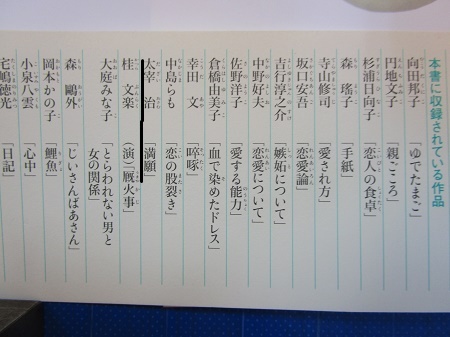 本書に収録されている作品
向田邦子「ゆでたまご」
円地文子「親ごころ」
杉浦日向子「恋人の食卓」
森 瑤子「手紙」
寺山修司「愛され方」
坂口安吾「恋愛論」
吉行淳之介「嫉妬について」
中野好夫「恋愛について」
佐野洋子「愛する能力」
倉橋由美子「血で染めたドレス」
幸田 文「啐啄」
中島らも「恋の股裂き」
太宰 治「満願」
桂 文楽(演)「厩火事」
大庭みな子「とらわれない男と
女の関係」
森 鷗外「じいさんばあさん」
岡本かの子「鯉魚」
小泉八雲「心中」
宅嶋徳光「日記」